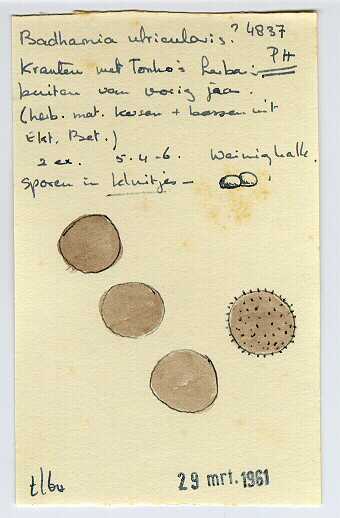 Badhamia utricularis? 4837
Kranten met Tonko's herba- PH
buiten van vorig jaar.
(herb. mat. kersen + bessen uit
Ekt. Bet.)
2 ex. 5.4-6. Weinig kalk.
Sporen in kluitjes -
29 mrt. 1961